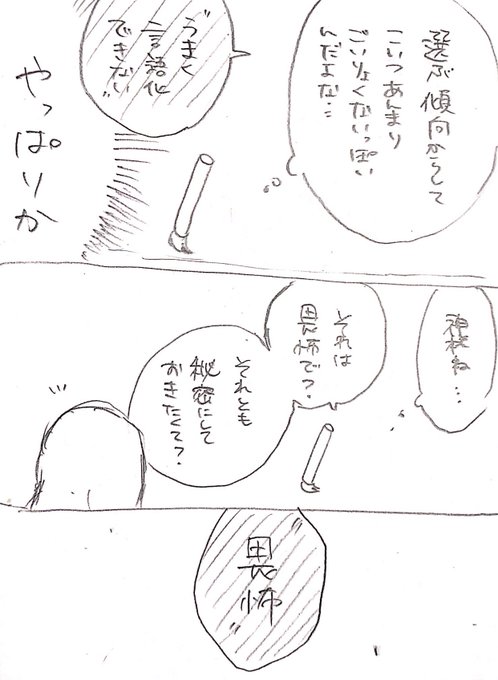 選ぶ傾向からして
こいつあんまり
ごいりょくないっぽい
んだよな…
"うまく
言語化
できない"
やっぱりか
神様ね…
それは
畏怖で？
それとも
秘密にして
おきたくて？
"畏怖"